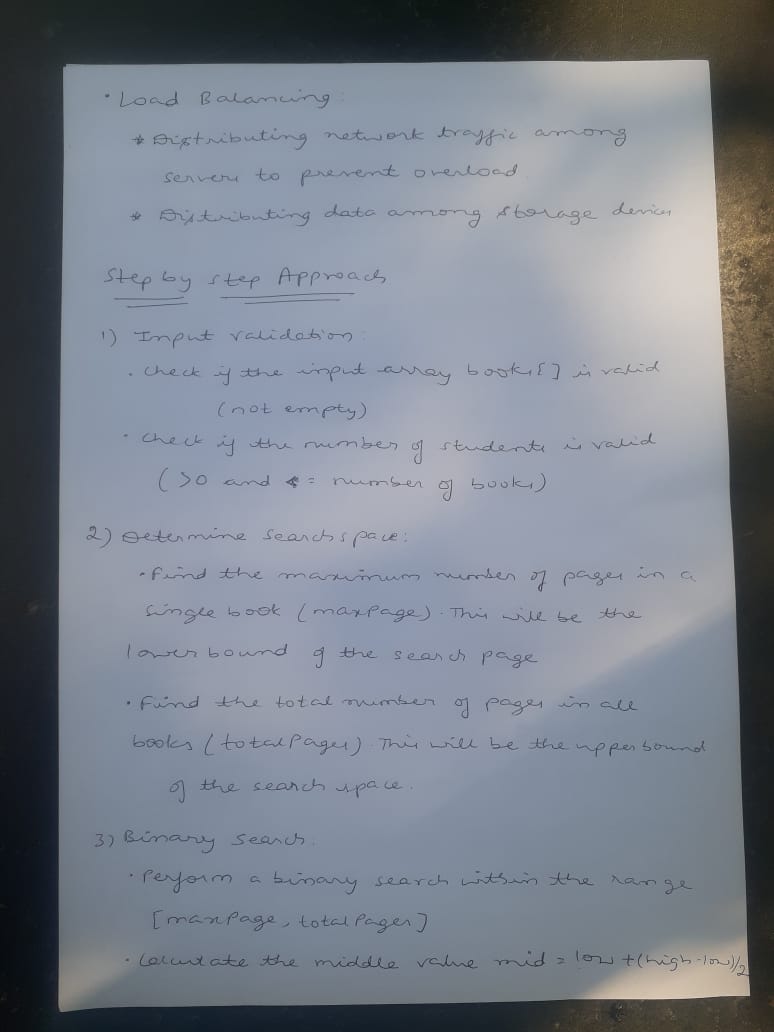 • Load Balancing:
* Distributing network traffic among
servers to prevent overload
* Distributing data among storage devices
Step by step Approach
1) Input validation:
• check if the input array books[] is valid
(not empty)
• check if the number of students is valid
( >0 and <= number of books)
2) Determine search space:
• Find the maximum number of pages in a
single book (maxpage). This will be the
lower bound of the search page
• Find the total number of pages in all
books (totalPages). This will be the upper bound
of the search space.
3) Binary Search.
• Perform a binary search within the range
[maxPage, totalPages]
• Calculate the middle value mid = low + (high-low)/2